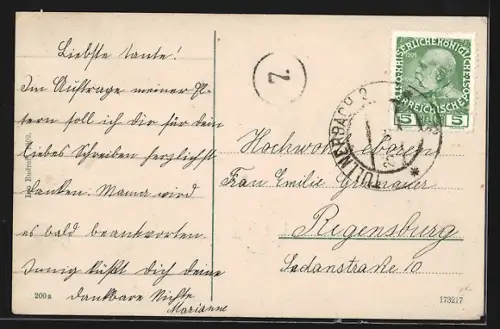 Liebste Tante!
Im Auftrage meiner El-
tern soll ich Dir für dein
liebes Schreiben herzlichst
danken. Mama wird
es bald beantworten
Innig küßt dich deine
dankbare Nichte
Marianne
200a
2
KAISERLICHE KÖNIGLICHE
ÖSTERREICHISCHE POST
5 5
TULLNERBACH
Hochwohlgeboren
Frau Emilie
Regensburg
Sedanstraße 10.
173217